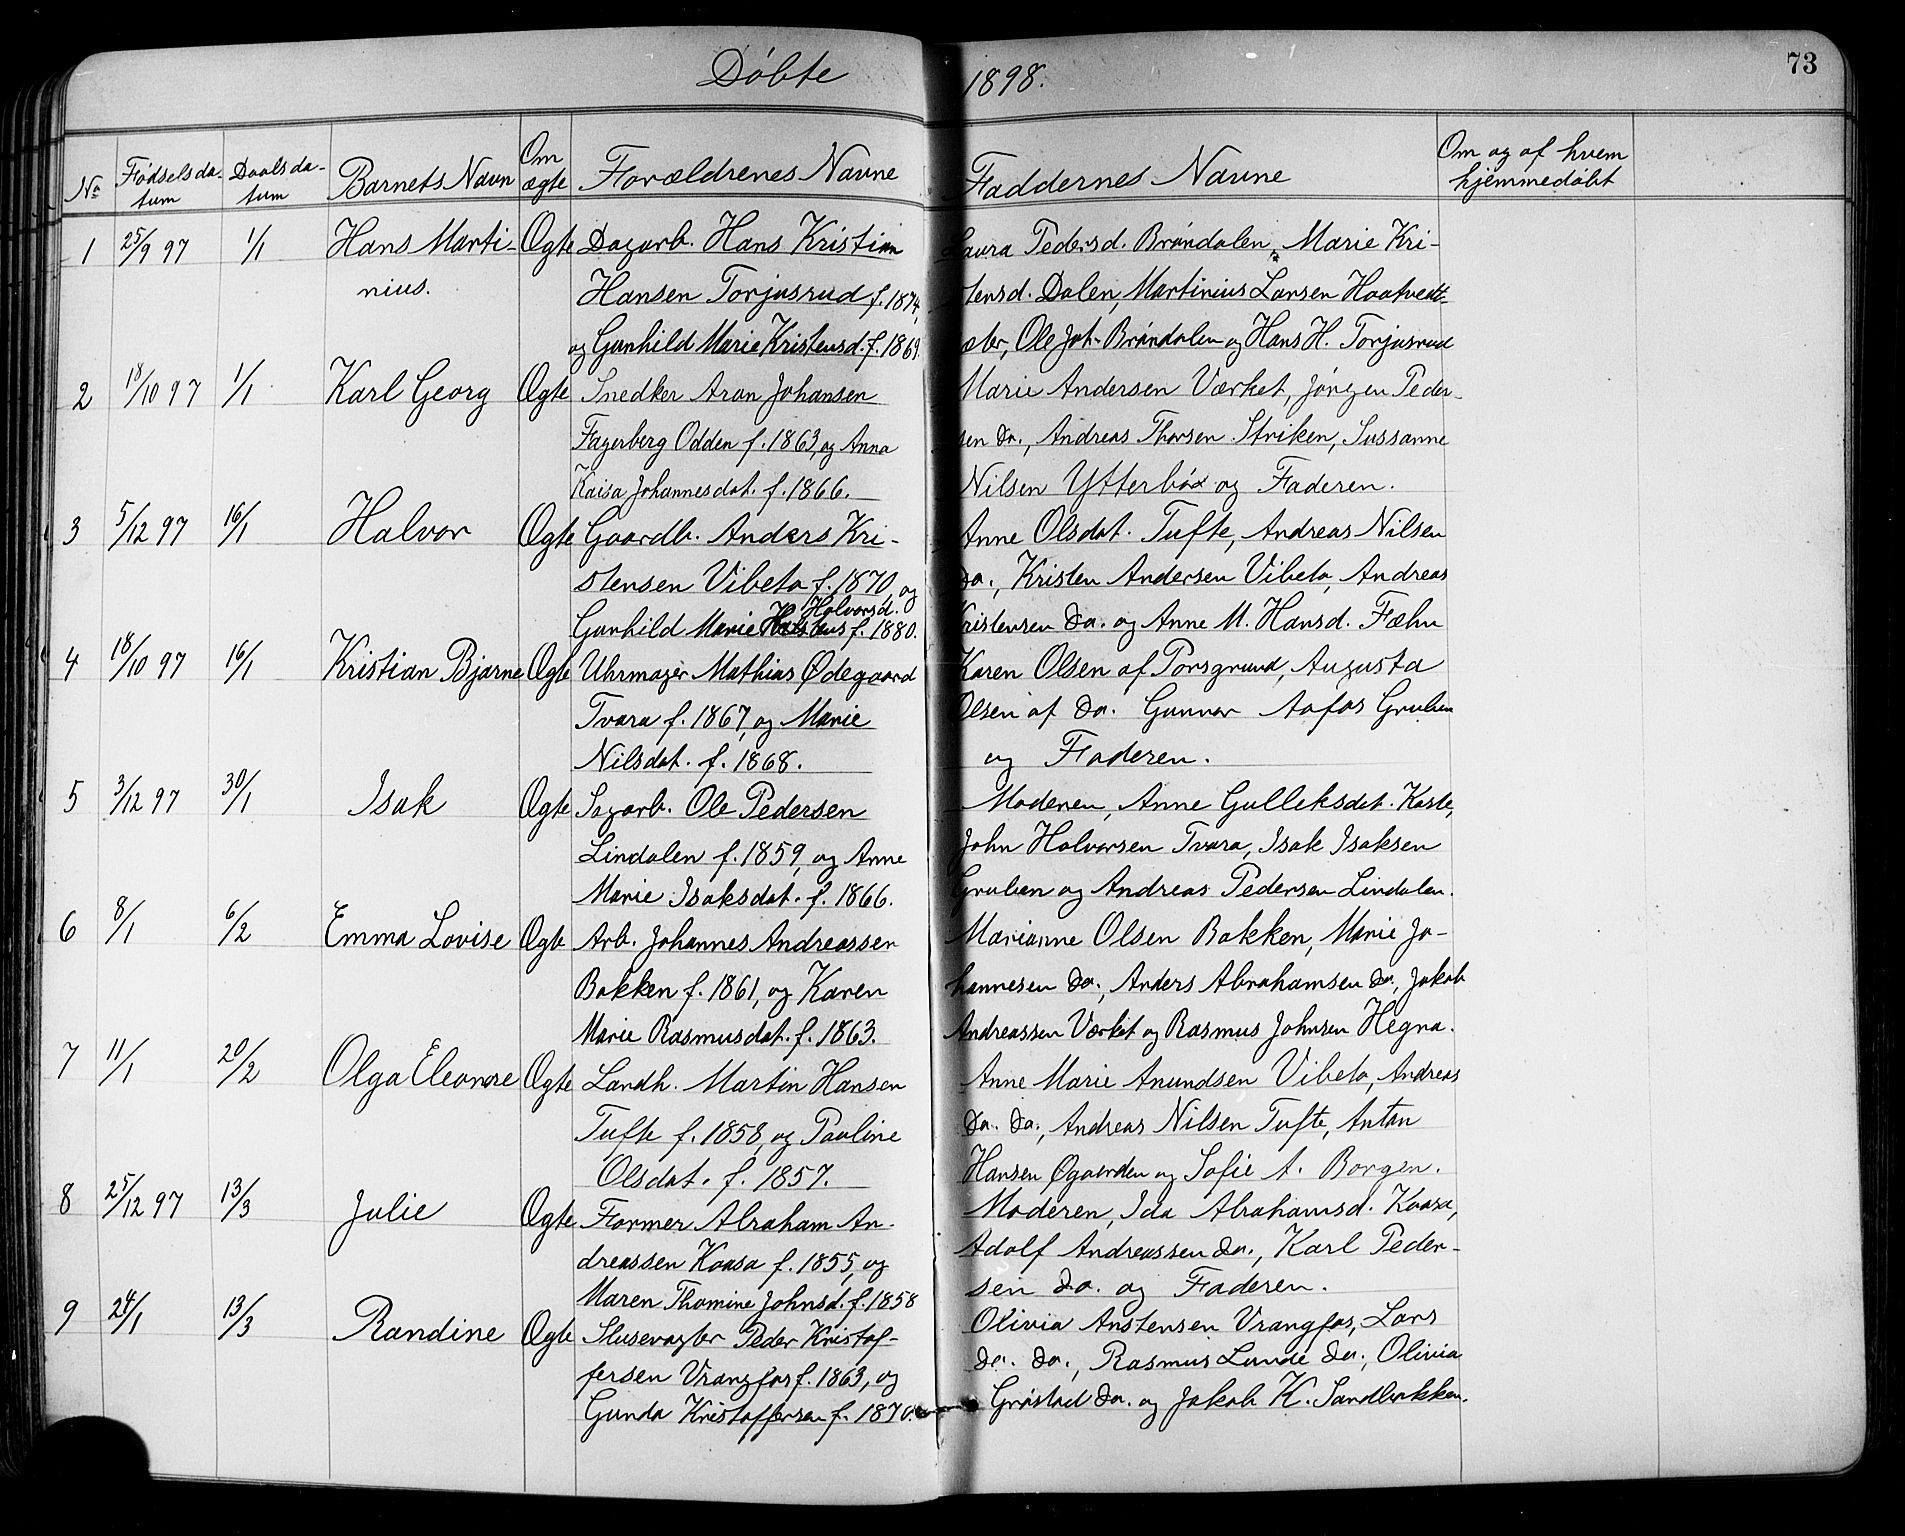 Døbte 1898. 73
No Fødselsda- Daabsda- Barnets Navn Om Forældrenes Navne Faddernes Navne Om og af hvem
tum tum ægte hjemmedøbt
1 25/9 97 1/1 Hans Marti- Ogte Dagarb. Hans Kristian Laura Pedersd. Brøndalen, Marie Kri-
nius. Hansen Torjusrud f. 1874, stensd. Dalen, Martinius Larsen Haatvedt-
og Gunhild Marie Kristensd. f. 1869. æter, Ole Joh. Brøndalen og Hans H. Torjusrud
2 18/10 97 1/1 Karl Georg Ogte Snedker Aron Johansen Marie Andersen Værket, Jørgen Peder-
Fagerberg Odden f. 1863, og Anna sen do., Andreas Thorsen Striken, Sussanne
Kaisa Johannesdat. f. 1866. Nilsen Ytterbøe og Faderen.
3 5/12 97 16/1 Halvor Ogte Gaardb. Anders Kri- Anne Olsdat. Tufte, Andreas Nilsen
stensen Vibeto f. 1870, og do., Kristen Andersen Vibeto, Andreas
Halvorsd.
Gunhild Marie f. 1880. Kristensen do. og Anne M. Hansd. Fæhn
4 18/10 97 16/1 Kristian Bjarne Ogte Uhrmager Mathias Ødegaard Karen Olsen af Porsgrund, Augusta
Tvara f. 1867, og Marie Olsen af do. Gunnar Aafos Gruben
Nilsdat. f. 1868. og Faderen.
5 3/12 97 30/1 Isak Ogte Sagarb. Ole Pedersen Moderen, Anne Gulleksdat. Kaste,
Lindalen f. 1859, og Anne John Halvorsen Tvara, Isak Isaksen
Marie Isaksdat. f. 1866. Gruben og Andreas Pedersen Lindalen.
6 8/1 6/2 Emma Lovise Ogte Arb. Johannes Andreassen Marianne Olsen Bakken, Marie Jo-
Bakken f. 1861, og Karen hannesen do., Anders Abrahamsen do., Jakob
Marie Rasmusdat. f. 1863. Andreassen Værket og Rasmus Johnsen Hegna.
7 11/1 20/2 Olga Eleonore Ogte Landh. Martin Hansen Anne Marie Anundsen Vibeto, Andreas
Tufte f. 1858, og Pauline do. do., Andreas Nilsen Tufte, Anton
Olsdat. f. 1857. Hansen Øgaarden og Sofie A. Borgen.
8 25/12 97 13/3 Julie Ogte Former Abraham An- Moderen, Ida Abrahamsd. Kaasa,
dreassen Kaasa f. 1855, og Adolf Andreassen do., Karl Peder-
Maren Thomine Johnsd. f. 1858 sen do. og Faderen.
9 24/1 13/3 Randine Ogte Slusevogter Peder Kristof- Olivia Anstensen Vrangfos, Lars
fersen Vrangfos f. 1863, og do. do., Rasmus Lunde do., Olivia
Gunda Kristoffersen f. 1870. Grøstad do. og Jakob K. Sandbakken.